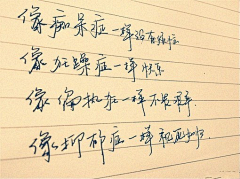 像痴呆症一样没有烦恼
像狂躁症一样快乐
像偏执狂一样不是罪
像抑郁症一样视死如归